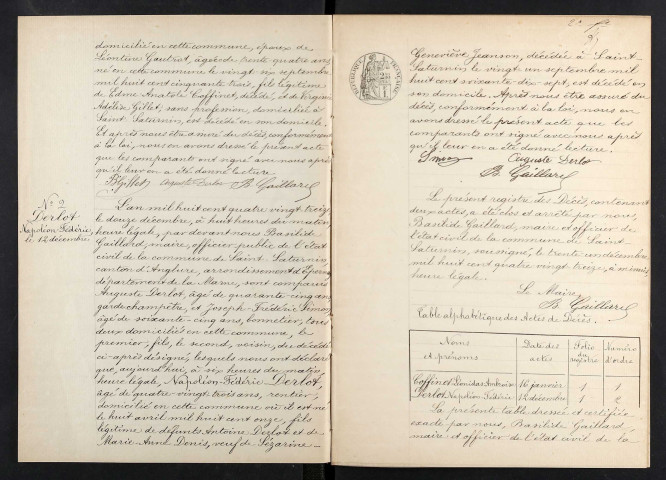 domicilié en cette commune, époux de
Léontine Gautrot, âgé de trente quatre ans
né en cette commune le vingt six septembre
mil huit cent cinquante trois, fils légitime
de Edme Anatole Coffinet, décédé, et de Virginie
Adeline Gillet, sans profession, domiciliée à
Saint Saturnin, est décédé en son domicile.
Et après nous être assuré du décès, conformément
à la loi, nous en avons dressé le présent acte
que les comparants ont signé avec nous après
qu'il leur en a été donné lecture
Gillet Auguste Derlot B. Gaillard
N° 2
Derlot
Napoléon Fédérie,
le 12 décembre
L'an mil huit cent quatre vingt treize
le douze décembre, à huit heures du matin
heure légale, par devant nous Basilide
Gaillard, maire, officier public de l'état
civil de la commune de Saint-Saturnin,
canton d'Anglure, arrondissement d'Épernay
département de la Marne, sont comparus
Auguste Derlot, âgé de quarante-cinq ans,
garde champêtre, et Joseph-Frédéric Simon,
âgé de soixante-cinq ans, bonnetier, tous
deux domiciliés en cette commune, le
premier, fils, le second, voisin, du décédé
ci-après désigné, lesquels nous ont déclaré
que, aujourd'hui, à six heures du matin,
heure légale, Napoléon-Fédérie-Derlot,
âgé de quatre-vingt trois ans, rentier,
domicilié en cette commune où il est né
le huit avril mil huit cent onze, fils
légitime de défunts Antoine Derlot et de
Marie-Anne Denis, veuf de Césarine-
RÉPUBLIQUE FRANÇAISE
Geneviève Jeanson, décédée à Saint-
Saturnin le vingt un septembre mil
huit cent soixante-dix-sept, est décédé en
son domicile. Après nous être assuré du
décès, conformément à la loi, nous en
avons dressé le présent acte que les
comparants ont signé avec nous après
qu'il leur en a été donné lecture.
Simon Auguste Derlot
B. Gaillard
Le présent registre des Décès, contenant
deux actes, a été clos et arrêté par nous,
Basilide Gaillard, maire et officier de
l'état civil de la commune de Saint-
Saturnin, soussigné, le trente un décembre
mil huit cent quatre vingt treize, à minuit,
heure légale.
Le Maire,
B. Gaillard
Table alphabétique des Actes de Décès.
Noms et prénoms Date des actes Folio du registre Numéro d'ordre
Coffinet Léonidas Ambroise 16 janvier 1 1
Derlot Napoléon Fédérie 12 décembre 1 2
La présente table dressée et certifiée
exacte par nous, Basilide Gaillard,
maire et officier de l'état civil de la